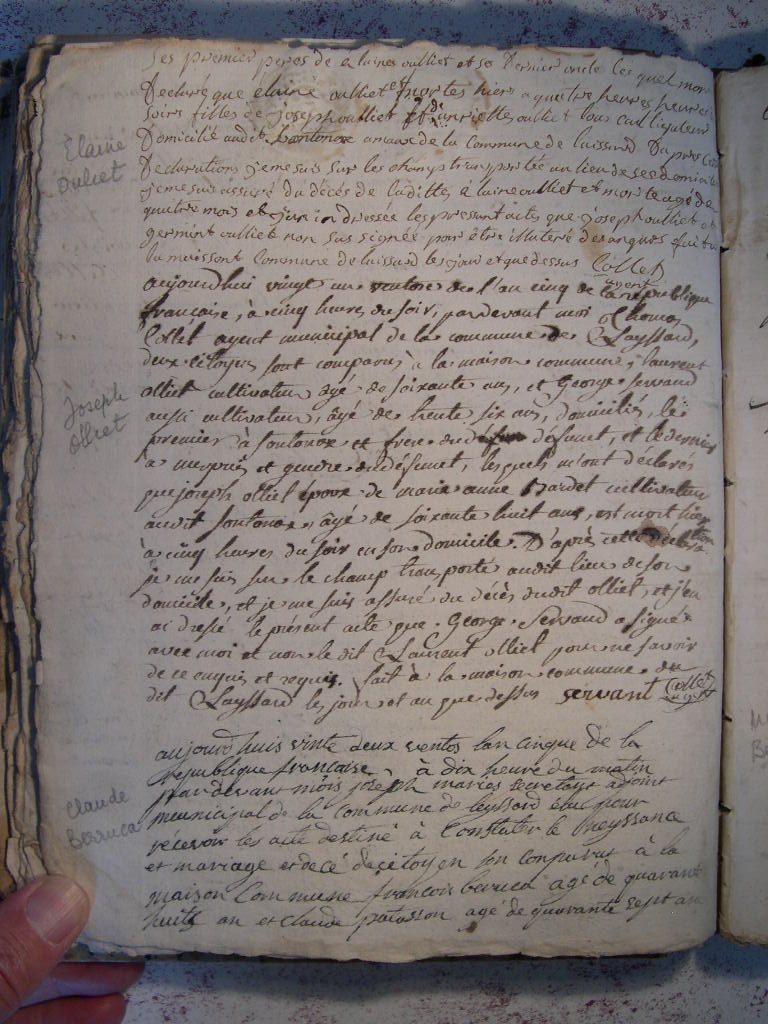 ses premier peres de elaines oulliet et so Dernier oncle les quel mon
Declaré que elainé oulliet est mortes hier a quattre heures heures
soires filles de joseph oulliet et d'anriette oulliet tous cultiqateur
Domicilié audit Santonax amaux de la Commune de Laissard Dapres Cette
Declarations je me suis sur les champ transportée au lieu de see domicile
je me suis assuré du décés de laditte elaine oulliet et morte agé de
quattre mois et jen in dressée les pressant actes que joseph oulliet et
germint oulliet non sus signée pour être illuteré des anques
la maisson Commune de laissard les jour et que dessus Collet agent
Elainé
Oulliet
aujourdhui vingt un ventose de l'an cinq de la republique
française, à cinq heures du soir, pardevant moi Thomas
Collet agent municipal de la commune de Layssard,
deux citoyens sont comparus à la maison commune, laurent
olliet cultivateur âgé de soixante ans, et George servand
aussi cultivateur, âgé de trente six ans, domiciliés, le
premier à sontonax et frere du défunt, et le dernier
à et gendre du défunt, lesquels m'ont déclarés
que joseph olliet époux de marie anne Hardet cultivateur
audit sontonax, âgé de soixante huit ans, est mort hier
à cinq heures du soir en son domicile. D'après cette déclaration
je me suis sur le champ transporté audit lieu de son
domicile, et je me suis assuré du décès dudit olliet, et j'en
ai dressé le présent acte que George Servand a signé
avec moi et non le dit Laurent olliet pour ne savoir
de ce enquis et requis. fait à la maison commune du
dit Layssard les jour et an que dessus servant Collet agent
Joseph
Olliet
aujourdhuis vinte deux ventos lan cinque de la
republique francaise, à dix heure du matin
pardevant mois joseph maries secretaire adjoint
municipal de la Commune de leyssard élu pour
récevoir les acte destiné à Constater le Neyssance
et mariage et decé de citoyen son conparut à la
maison Commune francois beruca agé de quarant
huits an et claude patasson agé de quarante sept an
Claude
Beruca